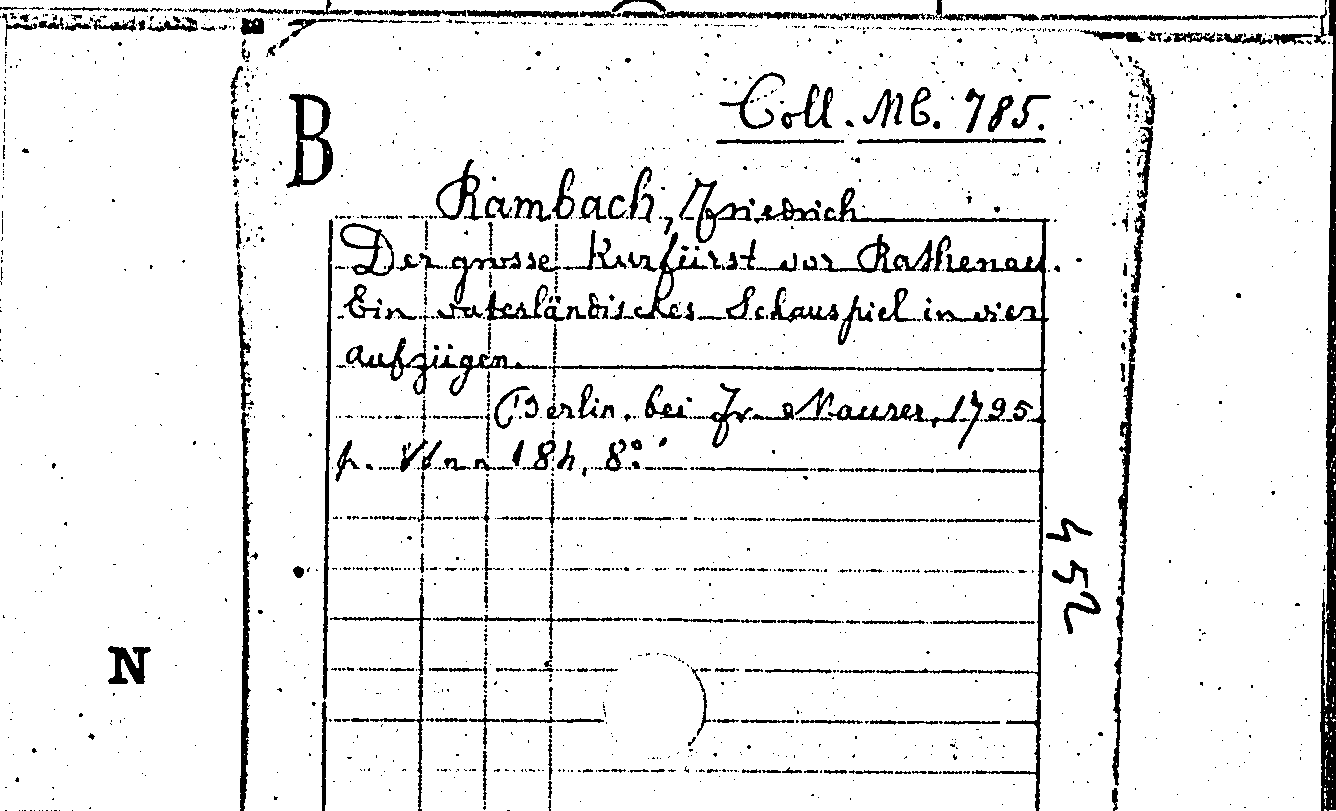 B
Coll. Mb. 785.
Rambach, Friedrich
Der grosse Kurfürst vor Rathenau.
Ein vaterländisches Schauspiel in vier
Aufzügen.
Berlin, bei Fr. Maurer, 1795.
p. 184, 8°.
452
N